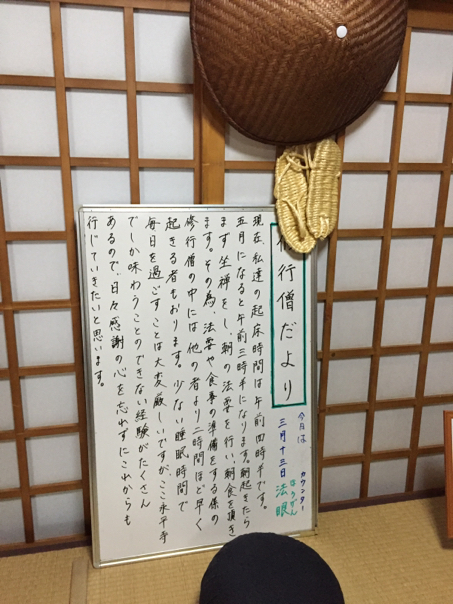 修行僧だより
今日は
三月十三日
カウンター
ほうげん
法眼
現在、私達の起床時間は午前四時半です。
五月になると午前三時半になります。朝起きたら
まず坐禅をし、朝の法要を行い、朝食を頂き
ます。その為、法要や食事の準備をする係の
修行僧の中には他の者より二時間ほど早く
起きる者もおります。少ない睡眠時間で
毎日を過ごすことは大変厳しいですが、ここ永平寺
でしか味わうことのできない経験がたくさん
あるので、日々感謝の心を忘れずにこれからも
行じていきたいと思います。